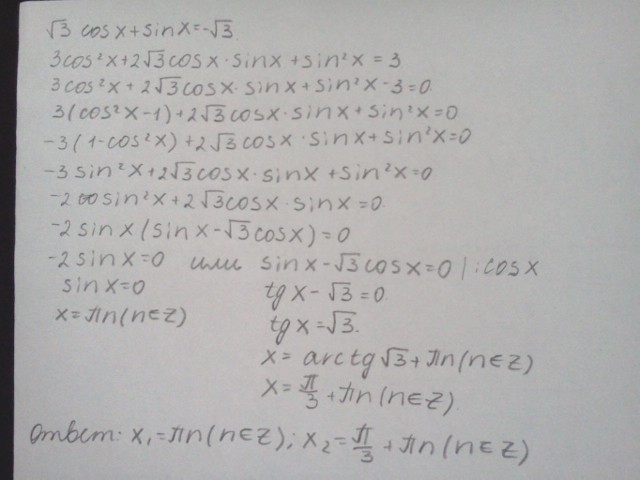 √3 cosx+sinx=-√3.
3cos²x+2√3cosx·sinx+sin²x=3
3cos²x+2√3cosx·sinx+sin²x-3=0
3(cos²x-1)+2√3cosx·sinx+sin²x=0
-3(1-cos²x)+2√3cosx·sinx+sin²x=0
-3sin²x+2√3cosx·sinx+sin²x=0
-2sin²x+2√3cosx·sinx=0
-2sinx(sinx-√3cosx)=0
-2sinx=0 или sinx-√3cosx=0 |:cosx
sinx=0 tgx-√3=0
x=πn(n∈Z) tgx=√3.
x=arctg√3+πn(n∈Z)
x=π/3+πn(n∈Z)
Ответ: x₁=πn(n∈Z); x₂=π/3+πn(n∈Z)